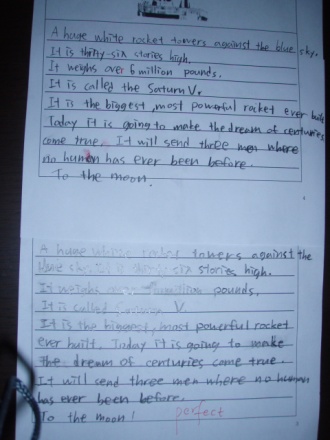 A huge white rocket towers against the blue sky.
It is thirty-six stories high.
It weighs over 6 million pounds.
It is called the Saturn V.
It is the biggest, most powerful rocket ever built
Today it is going to make the dream of centuries
come true. It will send three men where
no human has ever been before.
To the moon.
A huge white rocket towers against the
blue sky. It is thirty six stories high.
It weighs over 6 million pounds.
It is called Saturn V.
It is the biggest, most powerful rocket
ever built. Today it is going to make
the dream of centuries come true.
It will send three men where no human
has ever been before.
To the moon!
perfect